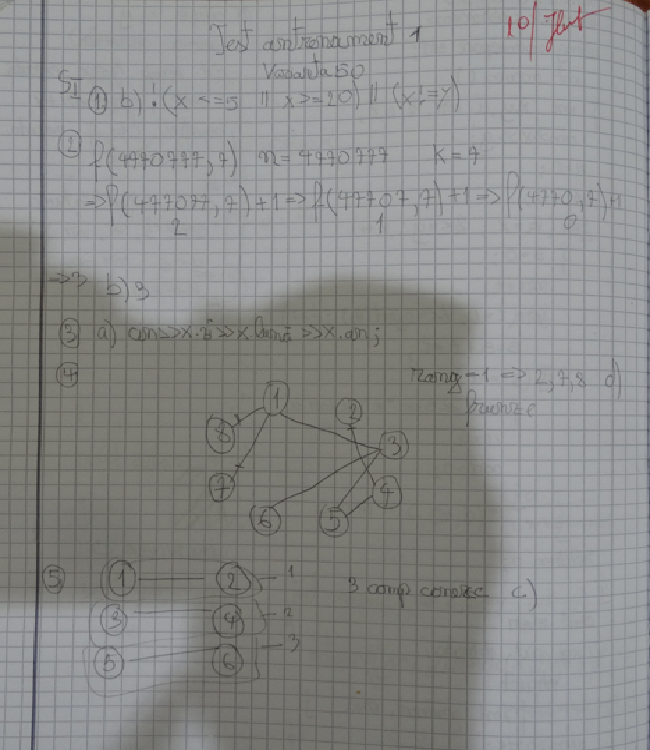 Test antrenament 1
10/
Varianta 50
SI
① b) !(x <=5 || x>=20) || (x!=y)
② f(4770777,7) n=4770777 K=7
=> f(477077,7)+1 => f(47707,7)+1 => f(4770,7)+1
2 1 0
=>3 b)3
③ a) cin>>x.zi>>x.luna>>x.an;
④ rang=1 => 2,7,8 d)
frunze
1 2
8 3
7 4
6 5
⑤ 1 2 1 3 comp conexe c)
3 4 2
5 6 3